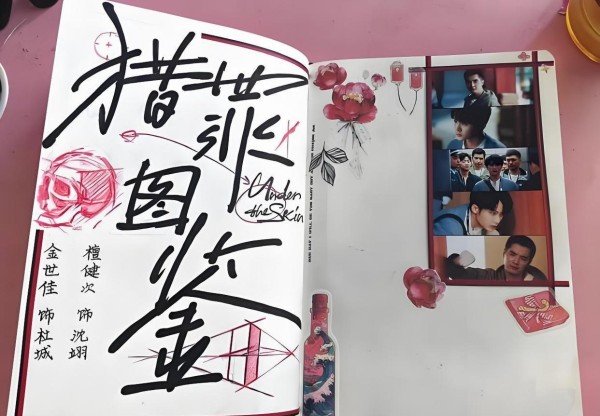 猎罪图鉴
Under
the Skin
檀健次 饰 沈翊
金世佳 饰 杜城